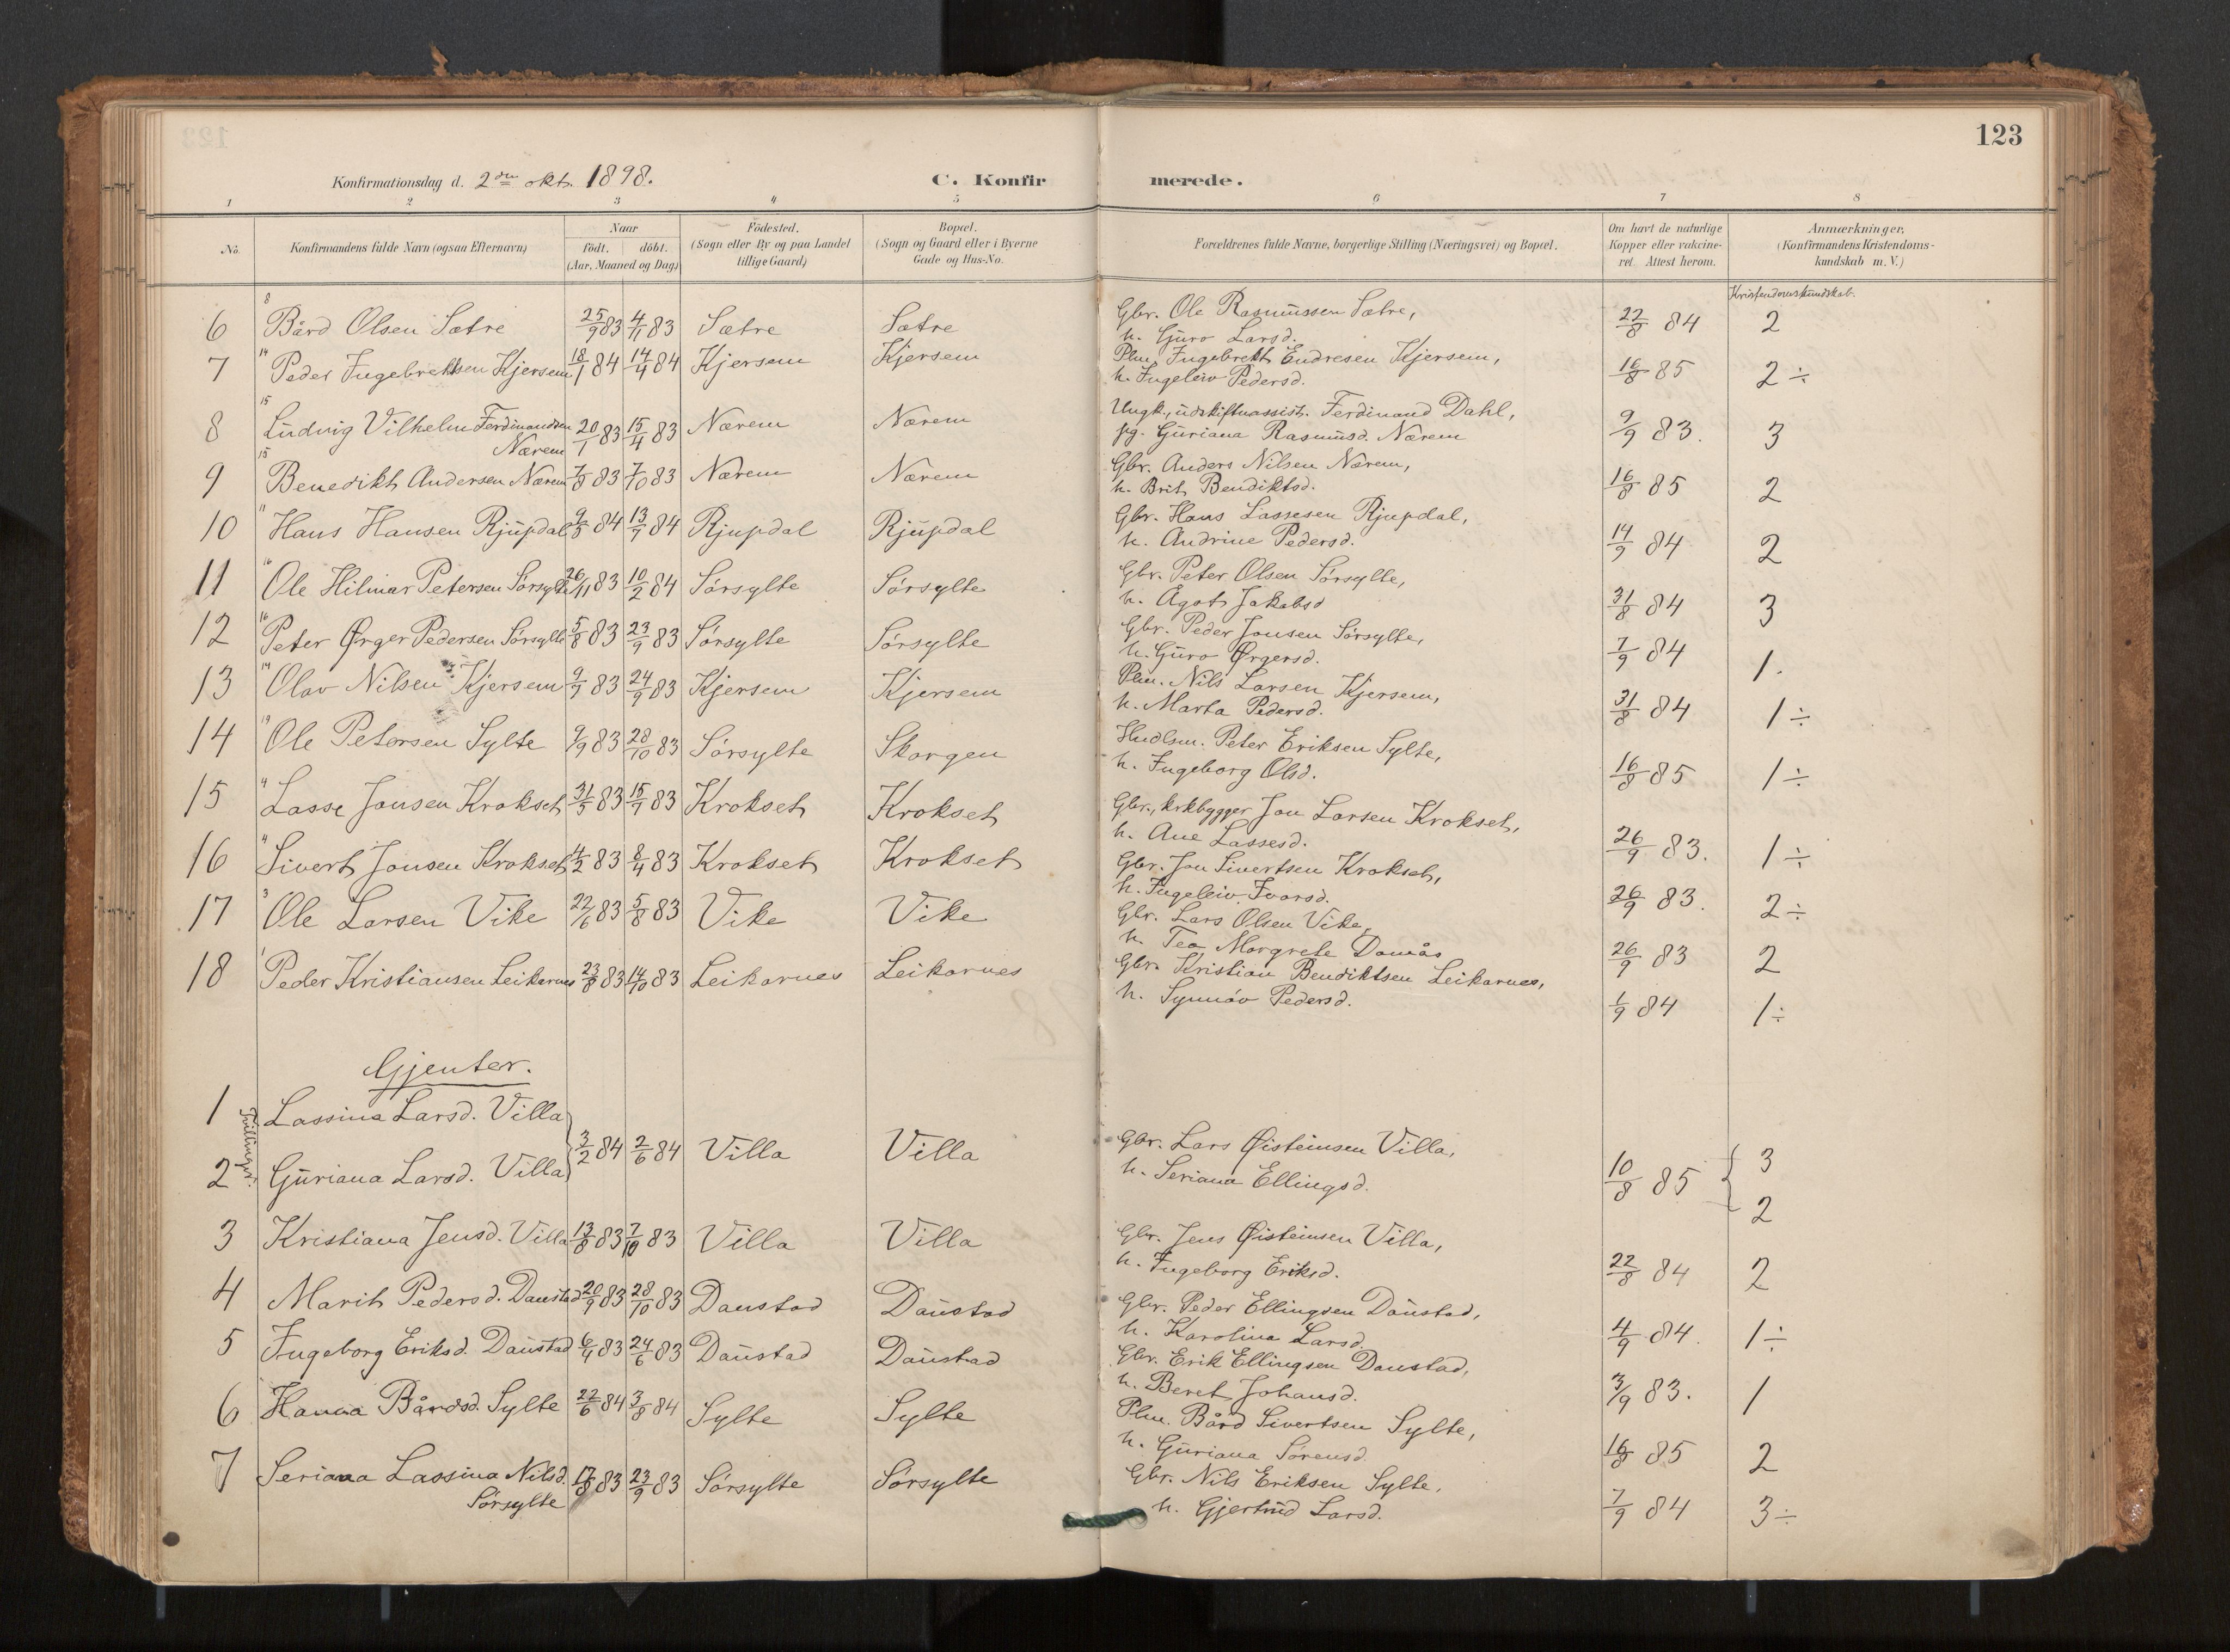 123
Konfirmationsdag d. 2den okt. 1898.
C. Konfirmerede.
1 2 3 4 5 6 7 8
No. Konfirmandens fulde Navn (ogsaa Efternavn) Naar født. døbt. (Aar, Maaned og Dag) Födested. (Sogn eller By og paa Landet tillige Gaard) Bopæl. (Sogn og Gaard eller i Byerne Gade og Hus-No. Forældrenes fulde Navne, borgerlige Stilling (Næringsvei) og Bopæl. Om havt de naturlige Kopper eller vakcineret. Attest herom. Anmærkninger, (Konfirmandens Kristendomskundskab m. V.)
Kristendomskundskab.
6 8 Bård Olsen Sætre 25/9 83 4/11 83 Sætre Sætre Gbr. Ole Rasmussen Sætre, 22/8 84 2
h. Guro Larsd.
7 14 Peder Ingebrektsen Kjersem 18/1 84 14/4 84 Kjersem Kjersem Plm. Ingebrekt Endresen Kjersem, 16/8 85 2 ÷
h. Ingeleiv Pedersd.
8 15 Ludvig Vilhelm Ferdinandsen 20/1 83 15/4 83 Nærem Nærem Ungk., udskiftnassist. Ferdinand Dahl, 9/9 83. 3
Nærem pg. Guriana Rasmusd. Nærem
9 15 Benedikt Andersen Nærem 7/8 83 7/10 83 Nærem Nærem Gbr. Anders Nilsen Nærem, 16/8 85 2
h. Brit Bendiktsd.
10 11 Hans Hansen Rjupdal 9/5 84 13/7 84 Rjupdal Rjupdal Gbr. Hans Lassesen Rjupdal, 14/9 84 2
h. Andrine Pedersd.
11 16 Ole Hilmar Petersen Sørsylte 26/11 83 10/2 84 Sørsylte Sørsylte Gbr. Peter Olsen Sørsylte, 31/8 84 3
h. Ågot Jakobsd
12 16 Peter Ørger Pedersen Sørsylte 5/8 83 23/9 83 Sørsylte Sørsylte Gbr. Peder Jonsen Sørsylte, 7/9 84 1.
h. Guro Ørgersd.
13 14 Olav Nilsen Kjersem 9/7 83 24/9 83 Kjersem Kjersem Plm. Nils Larsen Kjersem, 31/8 84 1 ÷
h. Marta Pedersd.
14 19 Ole Petersen Sylte 9/9 83 28/10 83 Sørsylte Skorgen Hndlsm. Peter Eriksen Sylte, 16/8 85 1 ÷
h. Ingeborg Olsd.
15 4 Lasse Jonsen Krokset 31/5 83 15/7 83 Krokset Krokset Gbr., kirkbygger Jon Larsen Krokset, 26/9 83. 1 ÷
h. Ane Lassesd.
16 4 Sivert Jonsen Krokset 4/2 83 8/4 83 Krokset Krokset Gbr. Jon Sivertsen Krokset, 26/9 83. 2 ÷
h. Ingeleiv Ivarsd.
17 3 Ole Larsen Vike 22/6 83 5/8 83 Vike Vike Gbr. Lars Olsen Vike, 26/9 83 2
h. Tea Margrete Domås
18 1 Peder Kristiansen Leikarnes 23/8 83 14/10 83 Leikarnes Leikarnes Gbr. Kristian Bendiktsen Leikarnes, 1/9 84 1 ÷
h. Synnøv Pedersd.
Gjenter.
1 Lassina Larsd. Villa
Tvillinger. 3/2 84 2/6 84 Villa Villa Gbr. Lars Øisteinsen Villa, 3
2 Guriana Larsd. Villa h. Seriana Ellingsd. 10/8 85 2
3 Kristiana Jensd. Villa 13/8 83 7/10 83 Villa Villa Gbr. Jens Øisteinsen Villa, 22/8 84 2
h. Ingeborg Eriksd.
4 Marit Pedersd. Daustad 20/9 83 28/10 83 Daustad Daustad Gbr. Peder Ellingsen Daustad, 4/9 84. 1 ÷
h. Karolina Larsd.
5 Ingeborg Eriksd. Daustad 6/4 83 24/6 83 Daustad Daustad Gbr. Erik Ellingsen Daustad, 3/9 83. 1
h. Beret Johansd.
6 Hanna Bårdsd. Sylte 22/6 84 3/8 84 Sylte Sylte Plm. Bård Sivertsen Sylte, 16/8 85 2
h. Guriana Sørensd.
7 Seriana Lassina Nilsd. 17/8 83 23/9 83 Sørsylte Sørsylte Gbr. Nils Eriksen Sylte, 7/9 84 3 ÷
Sørsylte h. Gjertrud Larsd.